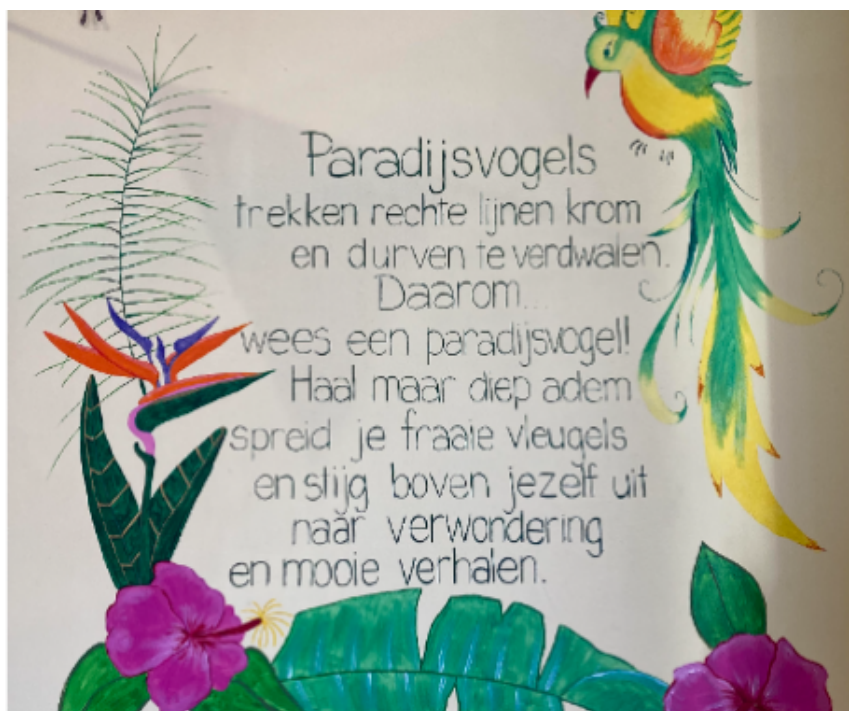 Paradijsvogels
trekken rechte lijnen krom
en durven te verdwalen.
Daarom...
wees een paradijsvogel!
Haal maar diep adem
spreid je fraaie vleugels
en stijg boven jezelf uit
naar verwondering
en mooie verhalen.